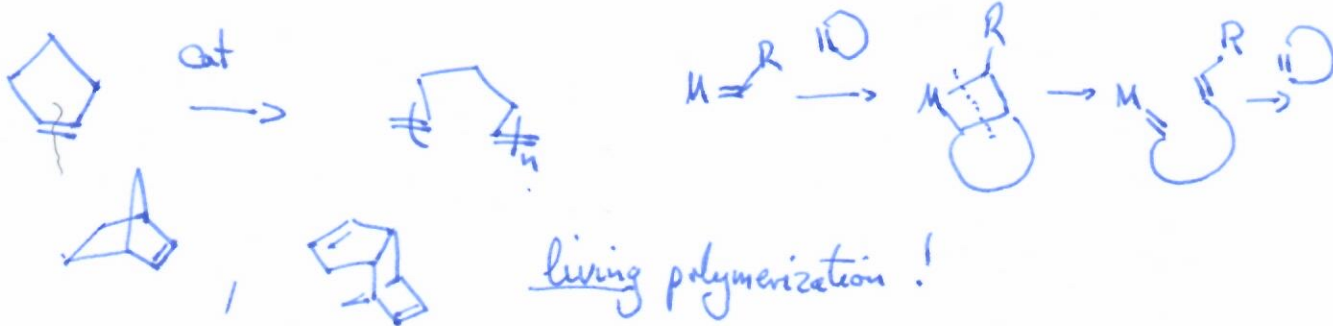 cat
R
M
R
M
R
M
n
living polymerization !